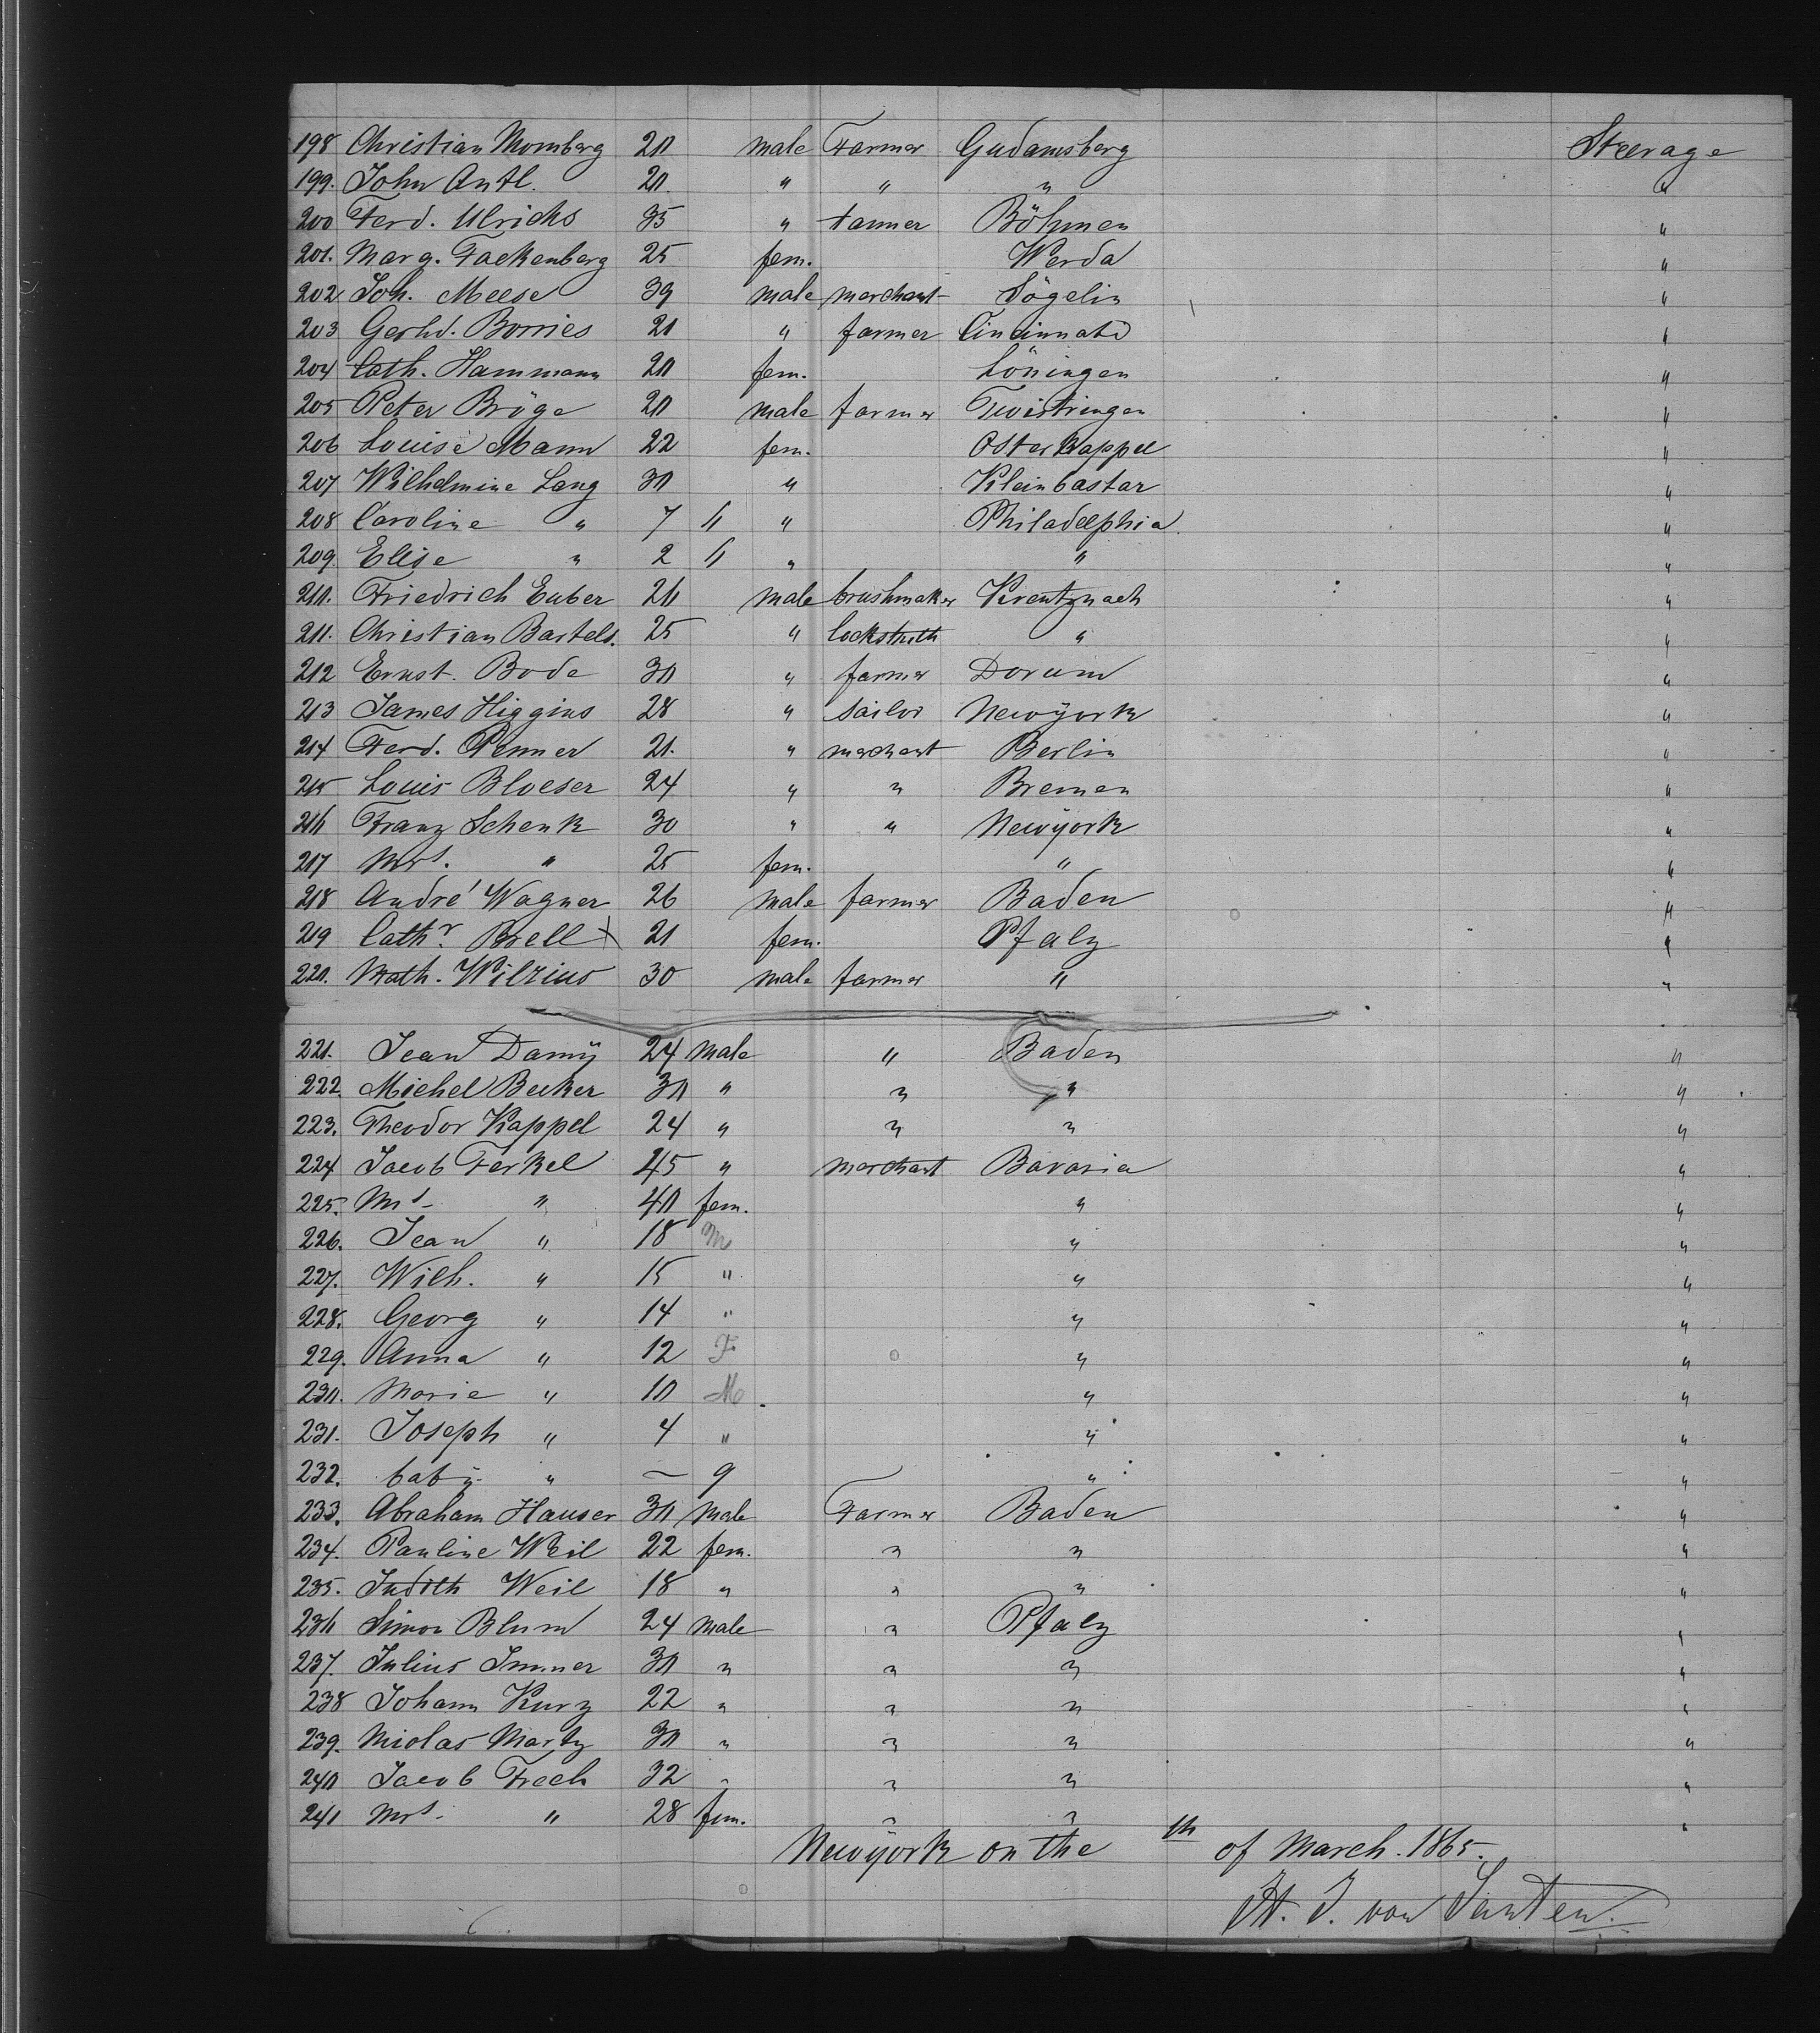 198 Christian Momberg 20 male Farmer Gudamsberg Steerage
199. John Antl. 20. " " " "
200 Ferd. Ulrichs 35 " tanner Böhmen "
201. Marg. Fackenberg 25 fem. Werda "
202 Joh. Meese 39 male merchant Sögelin "
203 Gerhd. Borries 20 " farmer Cincinnati "
204 Cath. Hammann 20 fem. Löningen "
205 Peter Bröge 20 male farmer Twistringen "
206 Louise Mann 22 fem. Osterkappel "
207 Wilhelmine Lang 30 " Kleinbastar "
208 Caroline " 7 " " Philadelphia "
209 Elise " 2 " " " "
210. Friedrich Euber 26 male brushmaker Krentznach "
211. Christian Bartels. 25 " locksmith " "
212 Ernst. Bode 30 " farmer Dorum "
213 James Higgins 28 " sailor Newÿork "
214 Ferd. Penner 21. " merchant Berlin "
215 Louis Bloeser 24 " " Bremen "
216 Franz Schenk 30 " " Newÿork "
217 Mrs. " 25 fem. " "
218 André Wagner 26 male farmer Baden "
219 Cathr. Brell X 21 fem. Pfalz "
220. Math. Wilzius 30 male farmer " "
221. Jean Damÿ 24 male " Baden "
222. Michel Becker 30 " " " "
223. Theodor Kappel 24 " " " "
224 Jacob Ferkel 45 " merchant Bavaria "
225. Ms " 40 fem. " "
226. Jean " 18 M " "
227. Wilh. " 15 " " "
228. Georg " 14 " " "
229. Anna " 12 F " "
230. Marie " 10 M " "
231. Joseph " 4 " " "
232. babÿ " — 9 " "
233. Abraham Hauser 30 male Farmer Baden "
234. Pauline Weil 22 fem. " " "
235. Judith Weil 18 " " " "
236 Simon Blum 24 male " Pfalz "
237. Julius Immer 30 " " " "
238 Johann Kurz 22 " " " "
239. Niolas Martz 30 " " " "
240 Jacob Frech 32 " " " "
241 Mrs. " 28 fem. " " "
Newÿork on the th of March. 1865.
H. J. von Santen.